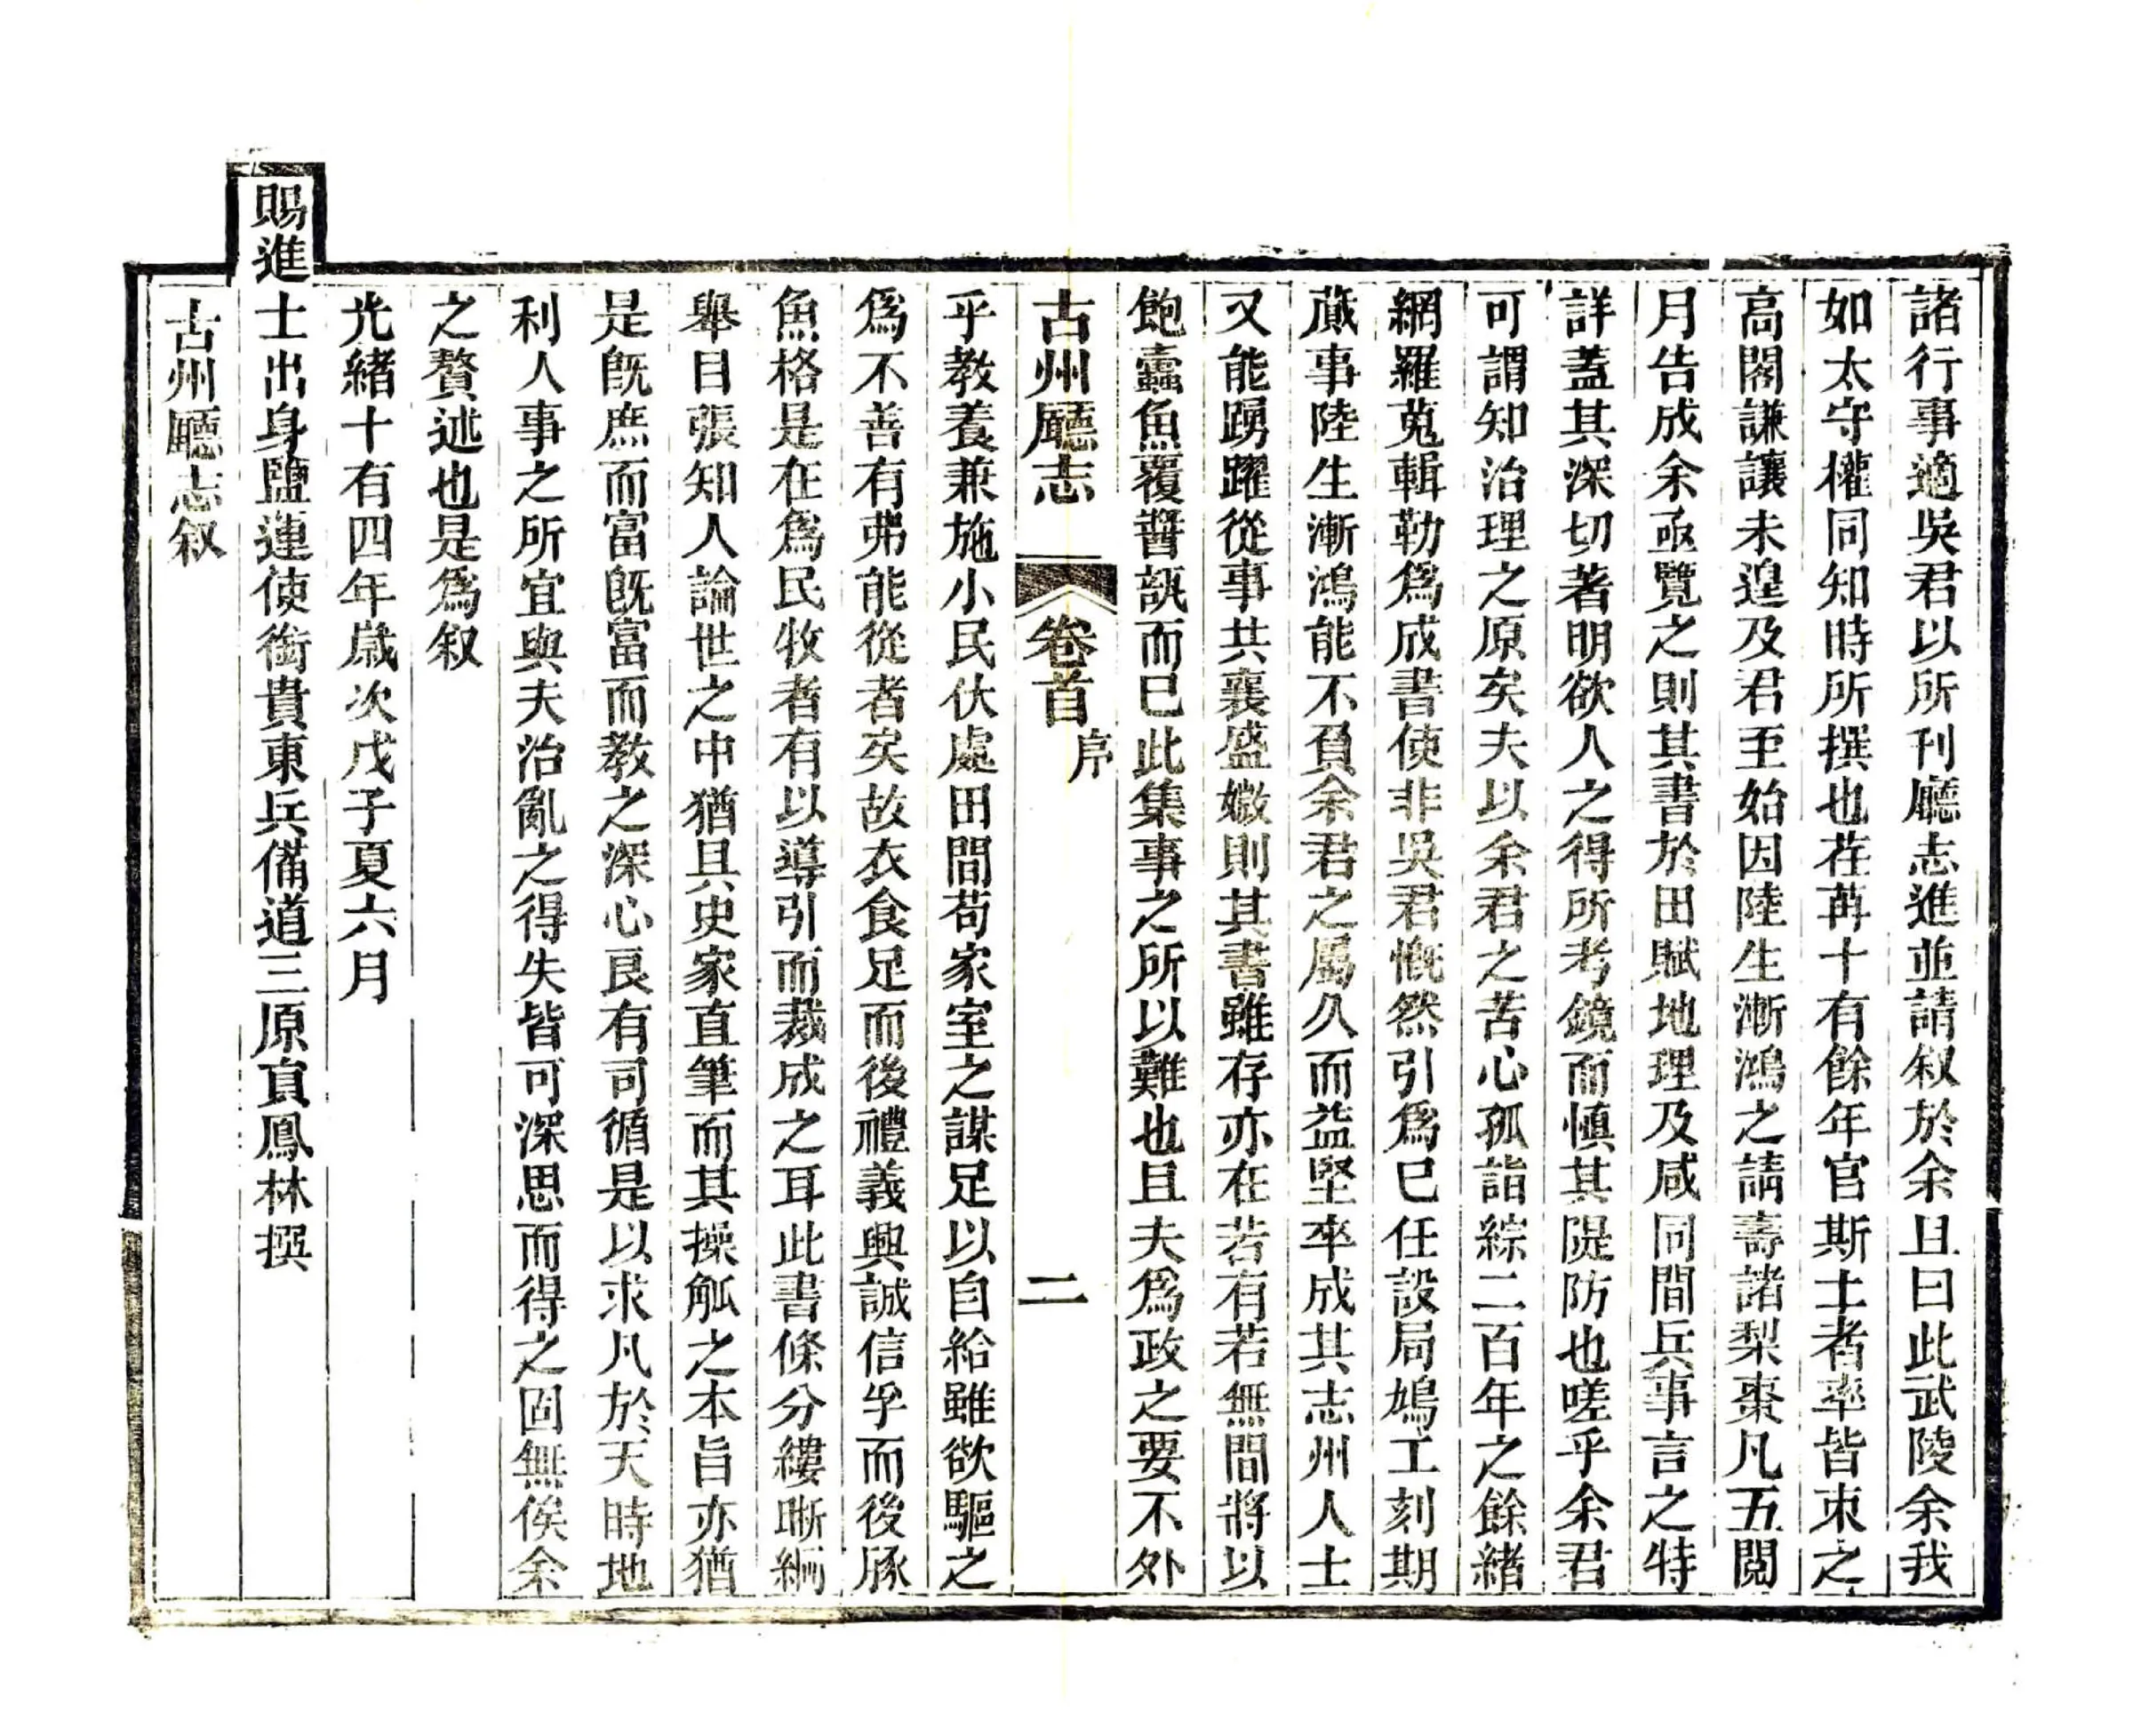 諸行事適吳君以所刊廳志進並請叙於余且曰此武陵余我
如太守權同知時所撰也荏苒十有餘年官斯土者率皆束之
高閣謙讓未遑及君至始因陸生漸鴻之請壽諸梨棗凡五閱
月告成余亟覽之則其書於田賦地理及咸同間兵事言之特
詳蓋其深切著明欲人之得所考鏡而慎其隄防也嗟乎余君
可謂知治理之原矣夫以余君之苦心孤詣綜二百年之餘緒
網羅蒐輯勒爲成書使非吳君慨然引爲已任設局鳩工刻期
蕆事陸生漸鴻能不負余君之屬久而益堅卒成其志州人士
又能踴躍從事共襄盛嫩則其書雖存亦在若有若無間將以
飽蠹魚覆醬瓿而已此集事之所以難也且夫爲政之要不外
古州廳志 卷首 序 二
乎教養兼施小民伏處田間苟家室之謀足以自給雖欲驅之
爲不善有弗能從者矣故衣食足而後禮義興誠信孚而後豚
魚格是在爲民牧者有以導引而裁成之耳此書條分縷晰綱
舉目張知人論世之中猶具史家直筆而其操觚之本旨亦猶
是旣庶而富旣富而教之深心良有司循是以求凡於天時地
利人事之所宜與夫治亂之得失皆可深思而得之固無俟余
之贅述也是爲叙
光緒十有四年歲次戊子夏六月
賜進士出身鹽運使銜貴東兵備道三原眞鳳林撰
古州廳志叙